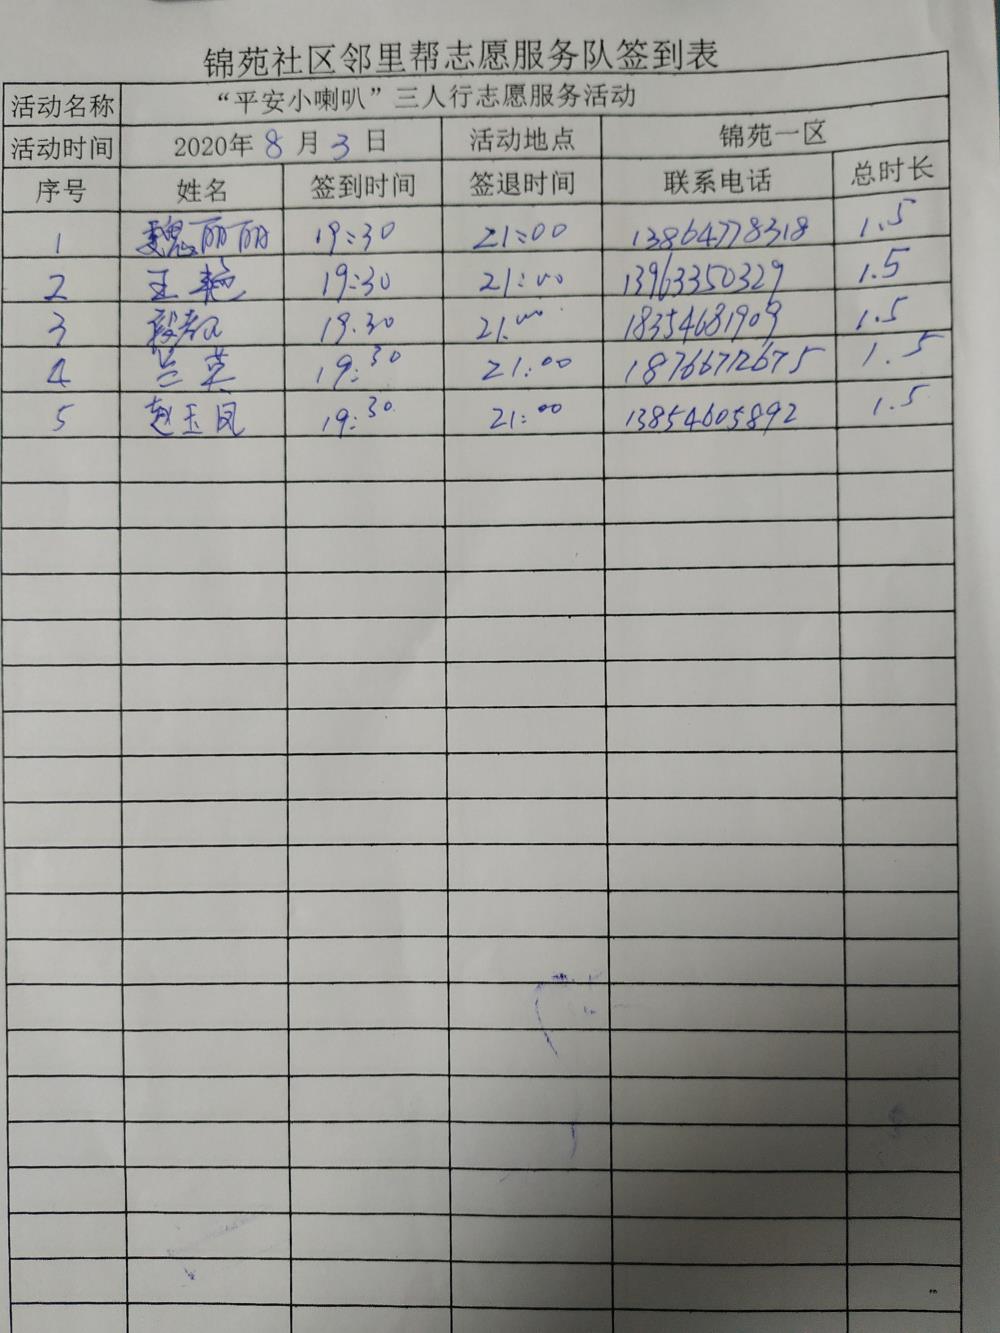 锦苑社区邻里帮志愿服务队签到表
活动名称 “平安小喇叭”三人行志愿服务活动
活动时间 2020年 8 月 3 日 活动地点 锦苑一区
序号 姓名 签到时间 签退时间 联系电话 总时长
1 魏丽丽 19:30 21:00 13864778318 1.5
2 王艳 19:30 21:00 13963350329 1.5
3 19.30 21:00 18354681909 1.5
4 兰英 19:30 21:00 18766712675 1.5
5 赵玉凤 19:30 21:00 13854605892 1.5